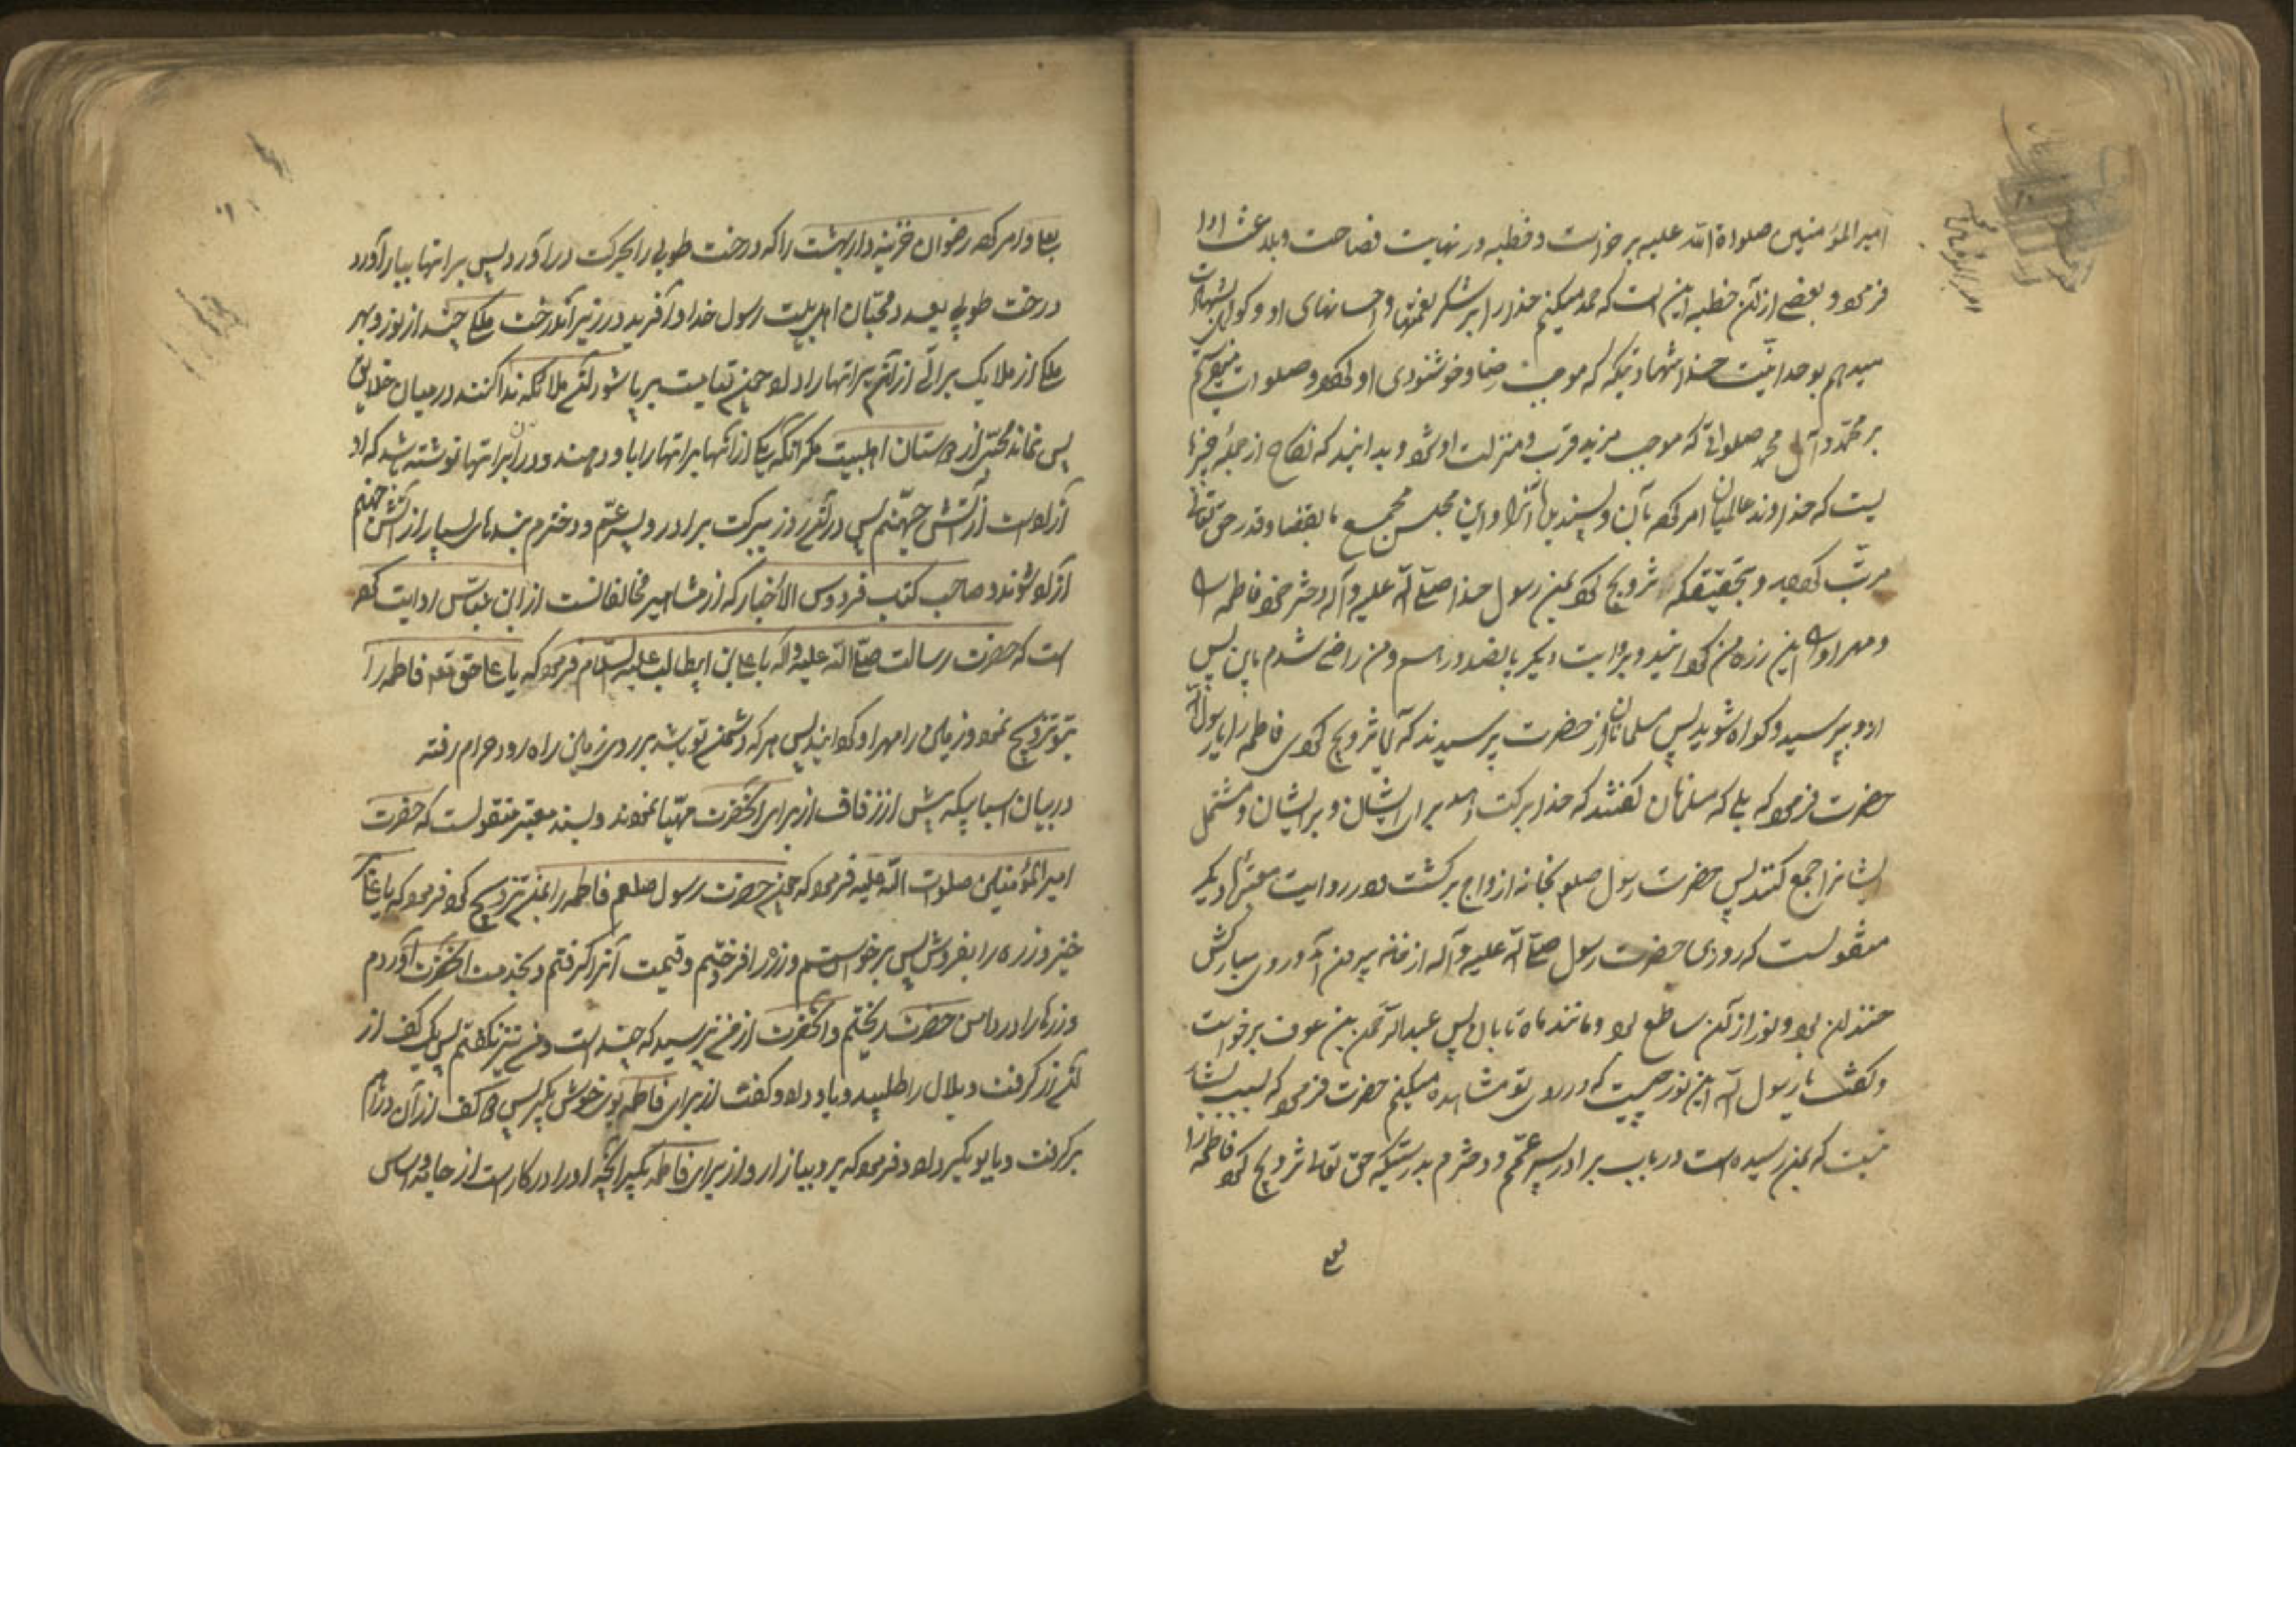 امیر المؤمنین صلواة الله علیه برخواست و خطبه در نهایت فصاحت و بلاغت ادا
فرمود و بعضی از آن خطبه این است که حمد میکنم خدا را بر شکر نعمتها و احسانهای او و گواهی
میدهم بوحدانیت خدا شهادتیکه که موجب رضا و خوشنودی او گردد و صلوات میفرستم
بر محمد و آل محمد صلواتی که موجب مزید قرب و منزلت او شود و بدانید که نکاح از جمله چیزها
یست که خداوند عالمیان امر کرده بآن و پسندیده آنرا و این مجلس مجمع ما بقضا و قدر حق تعالی
مرتب گردیده و بتحقیق که تزویج کرد بمن رسول خدا صلی الله علیه و آله دختر خود فاطمه را
و مهر او را این زره من گردانید و بروایت دیگر پانصد درهم و من راضی شدم باین پس
ازو بپرسید و گواه شوید پس مسلمانان از حضرت پرسیدند که آیا تزویج کردی فاطمه را یا رسول الله
حضرت فرمود که بلی که مسلمانان گفتند که خدا برکت دهد برای ایشان و بر ایشان و مشتمل
ایشانرا جمع کند پس حضرت رسول صلعم بخانه ازواج برگشت و در روایت معتبر دیگر
منقولست که روزی حضرت رسول صلی الله علیه و آله از خانه بیرون آمد و روی مبارکش
خندان بود و نور از آن ساطع بود و مانند ماه تابان پس عبدالرحمن بن عوف برخواست
و گفت یا رسول الله این نور چیست که در روی تو مشاهده میکنم حضرت فرمود که بسبب بشارت
نیست که بمن رسیده است در باب برادر و پسر عمم و دخترم بدرستیکه حق تعالی تزویج کرد فاطمه را
بعلی و امر کرد رضوان خزینه دار بهشت را که درخت طوبی را بحرکت درآورد پس براتها ببار آورد
درخت طوبی بعدد محبان اهل بیت رسول خدا و آفرید در زیر آندرخت ملکی چند از نور و بهر
ملکی از ملایک براتی از آن براتها را داد چون قیامت برپا شود آن ملائکه ندا کنند در میان خلایق
پس نماند محبی از دوستان اهلبیت مگر آنکه یکی از آنها براتها را باو دهند و در آن براتها نوشته باشد که او
آزاد است از آتش جهنم پس در آن روز ببرکت برادر و پسر عمم و دخترم بنده‌های بسیار از آتش جهنم
آزاد شوند و صاحب کتاب فردوس الاخبار که از مشاهیر مخالفانست از ابن عباس روایت کرده
است که حضرت رسالت صلی الله علیه و آله با علی بن ابیطالب علیه السلام فرمود که یا علی حق تعالی فاطمه را
بتو تزویج نمود و زمین را مهر او گردانید پس هر که دشمن تو باشد بر روی زمین راه رود حرام رفته
در بیان اسبابیکه پیش از زفاف از برای آنحضرت مهیا نمودند و بسند معتبر منقولست که حضرت
امیر المؤمنین صلوات الله علیه فرمود که چون حضرت رسول صلعم فاطمه را بمن تزویج کرد فرمود که یا علی
خیز و زره را بفروش پس برخواستم و زره را فروختم و قیمت آنرا گرفتم و بخدمت آنحضرت آوردم
و زرها را در دامن حضرت ریختم و آنحضرت از من نپرسید که چند است و من نیز نگفتم پس یک کف از
آن زر گرفت و بلال را طلبید و باو داد و گفت از برای فاطمه بوی خوش بگیر پس دو کف از آن دراهم
برگرفت و بابوبکر داد و فرمود که برو ببازار و از برای فاطمه بگیر آنچه او را در کار است از جامه و اساس